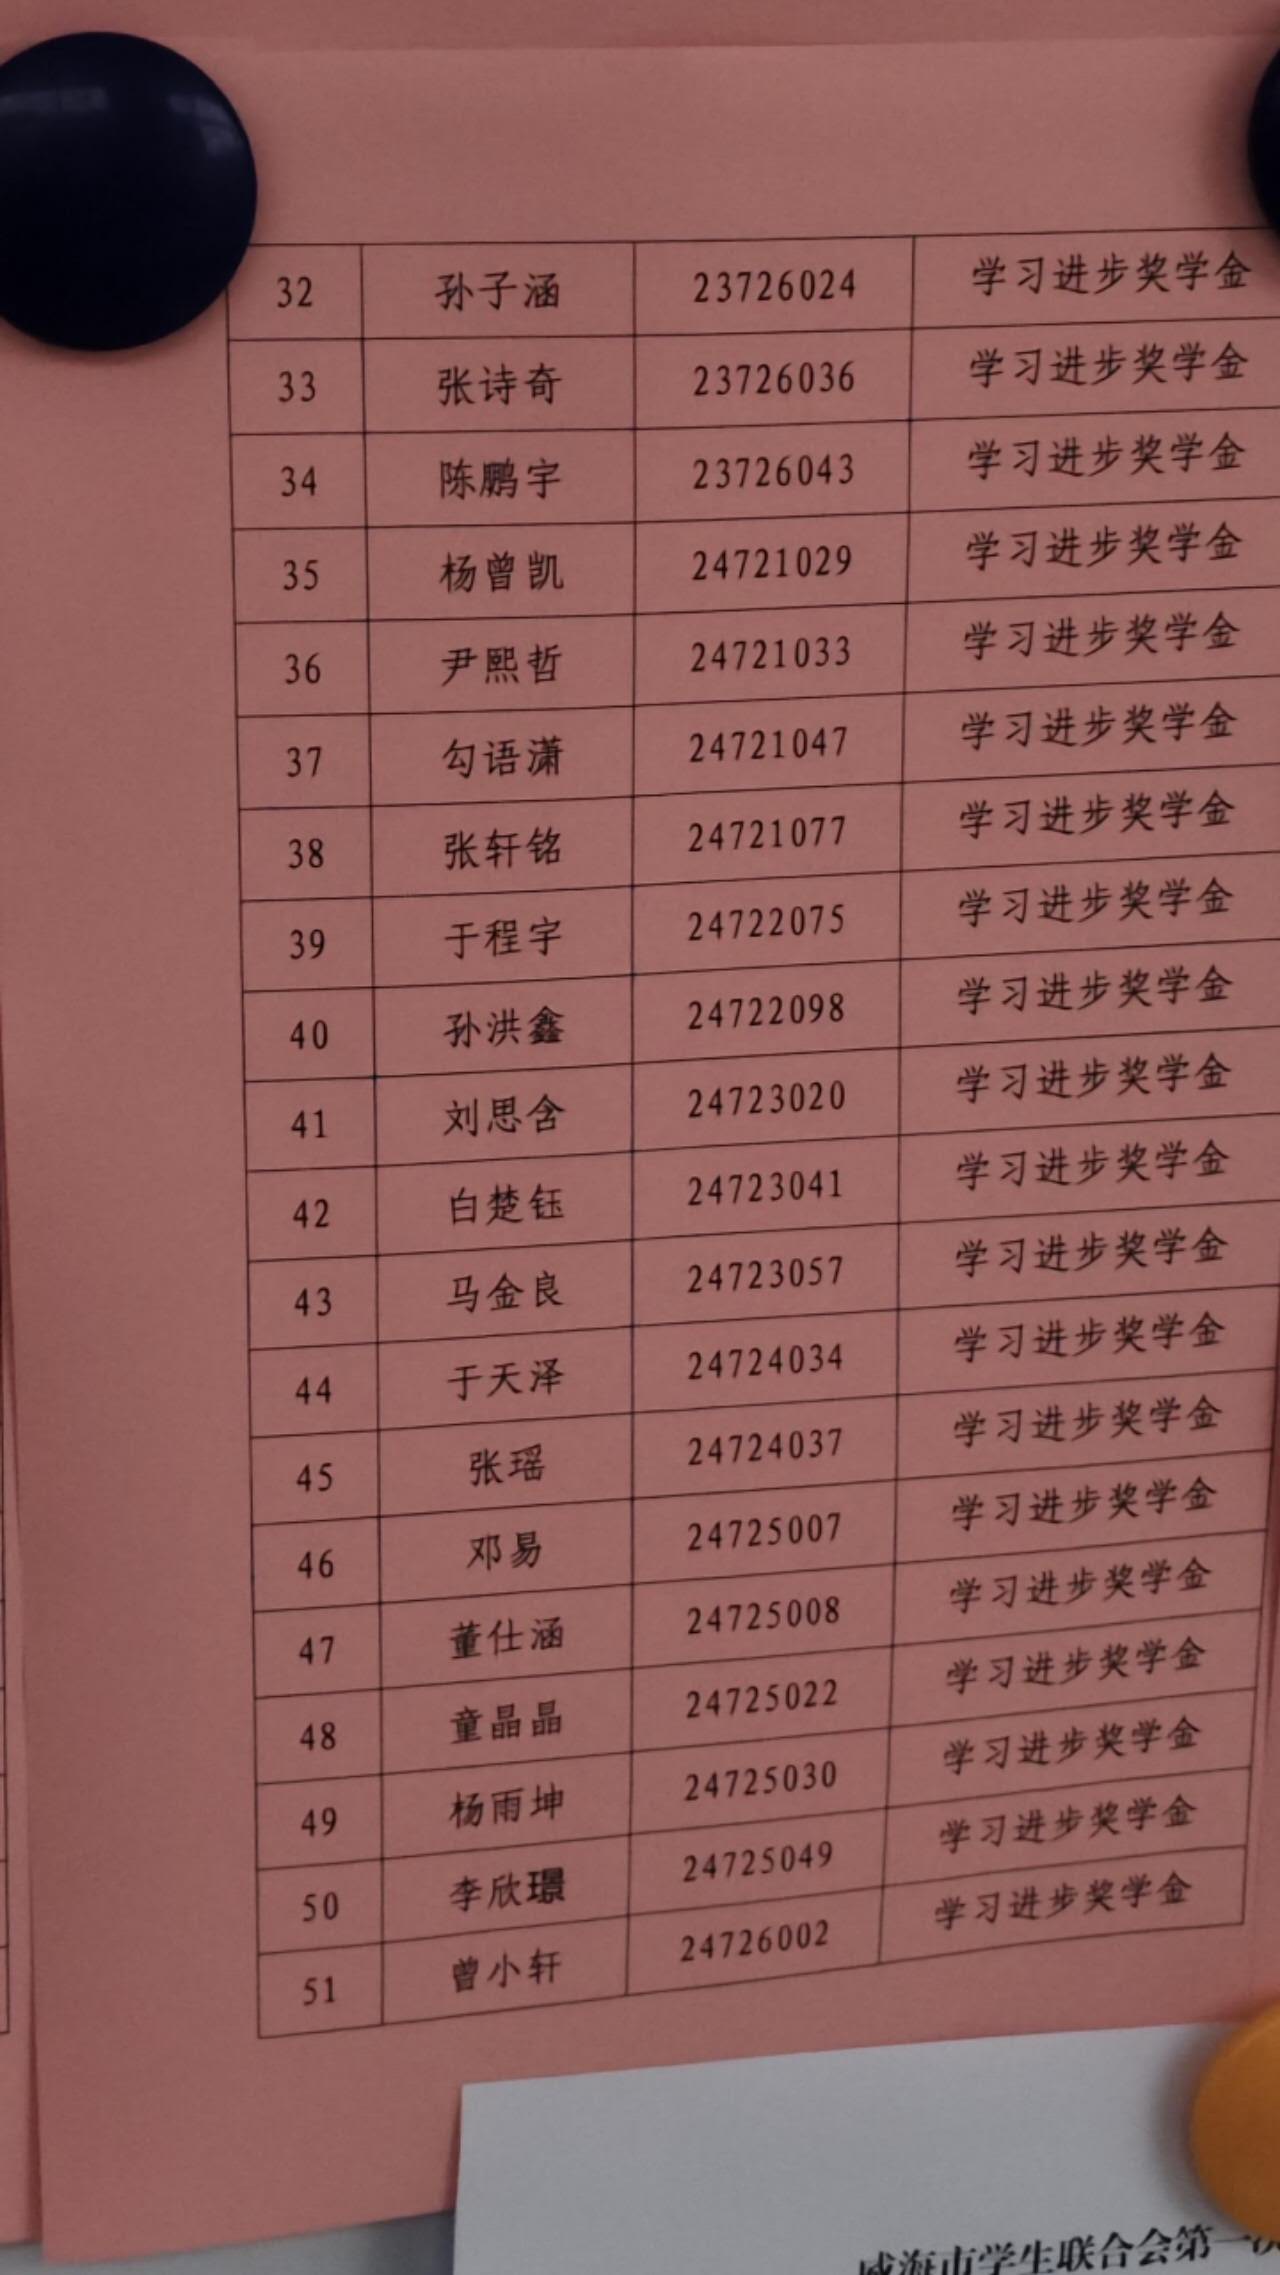 32 孙子涵 23726024 学习进步奖学金
33 张诗奇 23726036 学习进步奖学金
34 陈鹏宇 23726043 学习进步奖学金
35 杨曾凯 24721029 学习进步奖学金
36 尹熙哲 24721033 学习进步奖学金
37 勾语潇 24721047 学习进步奖学金
38 张轩铭 24721077 学习进步奖学金
39 于程宇 24722075 学习进步奖学金
40 孙洪鑫 24722098 学习进步奖学金
41 刘思含 24723020 学习进步奖学金
42 白楚钰 24723041 学习进步奖学金
43 马金良 24723057 学习进步奖学金
44 于天泽 24724034 学习进步奖学金
45 张瑶 24724037 学习进步奖学金
46 邓易 24725007 学习进步奖学金
47 董仕涵 24725008 学习进步奖学金
48 童晶晶 24725022 学习进步奖学金
49 杨雨坤 24725030 学习进步奖学金
50 李欣璟 24725049 学习进步奖学金
51 曾小轩 24726002 学习进步奖学金
威海市学生联合会第一次